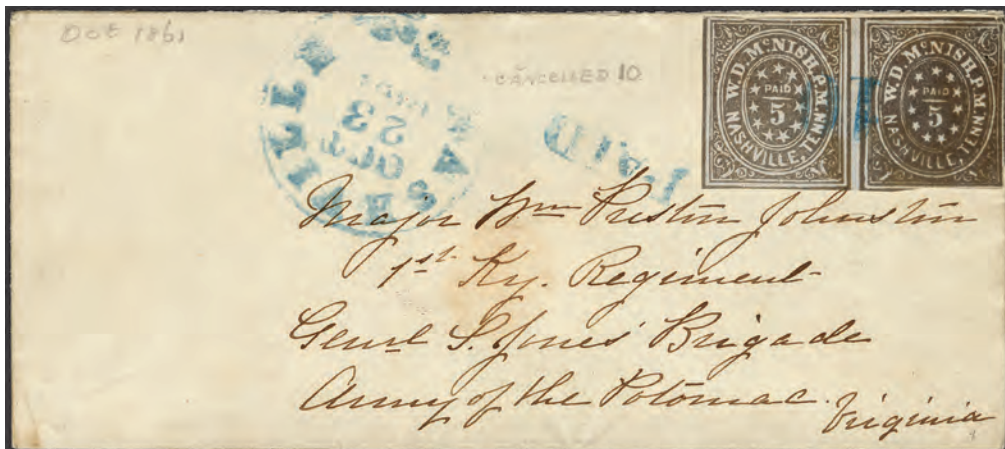 Oct 1861
CANCELLED 10
NASHVILLE
OCT
23
1861
PAID
10
W.D. McNISH, P.M.
PAID
5
NASHVILLE, TENN.
W.D. McNISH, P.M.
PAID
5
NASHVILLE, TENN.
Major Wm Preston Johnston
1st Ky. Regiment
Genrl S. Jones' Brigade
Army of the Potomac.
Virginia